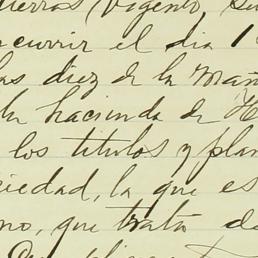 tierras, Vigento, Su
ocurrir el dia 1
las diez de la mañ
la hacienda de H
los titulos y plan
iedad, la que es
no, que trata de